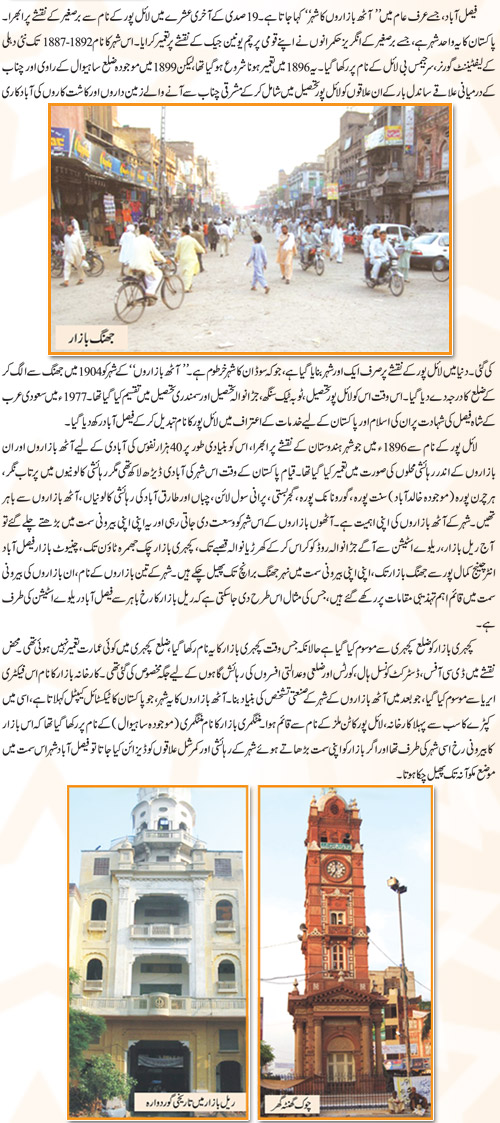 فیصل آباد، جسے عرف عام میں ’’آٹھ بازاروں کا شہر‘‘ کہا جاتا ہے۔ 19 صدی کے آخری عشرے میں لائل پور کے نام سے برصغیر کے نقشے پر ابھرا۔
پاکستان کا یہ واحد شہر ہے، جسے برصغیر کے انگریز حکمرانوں نے اپنے قومی پرچم یونین جیک کے نقشے پر تعمیر کرایا۔ اس شہر کا نام 1892-1887 تک نئی دہلی
کے لیفٹیننٹ گورنر، سر جیمس بی لائل کے نام پر رکھا گیا۔ یہ 1896 میں تعمیر ہونا شروع ہو گیا تھا لیکن 1899 میں موجودہ ضلع ساہیوال کے راوی اور چناب
کے درمیانی علاقے ساندل بار کے ان علاقوں کو لائل پور تحصیل میں شامل کر کے مشرقی چناب سے آنے والے زمین داروں اور کاشت کاروں کی آباد کاری
جھنگ بازار
کی گئی۔ دنیا میں لائل پور کے نقشے پر صرف ایک اور شہر بنایا گیا ہے، جو کہ سوڈان کا شہر خرطوم ہے۔ ’’آٹھ بازاروں‘‘ کے شہر کو 1904 میں جھنگ سے الگ کر
کے ضلع کا درجہ دے دیا گیا۔ اس وقت اس کو لائل پور تحصیل، ٹوبہ ٹیک سنگھ، جڑانوالہ تحصیل اور سمندری تحصیل میں تقسیم کیا گیا تھا۔ 1977ء میں سعودی عرب
کے شاہ فیصل کی شہادت پر ان کی اسلام اور پاکستان کے لیے خدمات کے اعتراف میں لائل پور کا نام تبدیل کر کے فیصل آباد رکھ دیا گیا۔
لائل پور کے نام سے 1896ء میں جو شہر ہندوستان کے نقشے پر ابھرا، اس کو بنیادی طور پر 40 ہزار نفوس کی آبادی کے لیے آٹھ بازاروں اور ان
بازاروں کے اندر رہائشی محلوں کی صورت میں تعمیر کیا گیا تھا۔ قیام پاکستان کے وقت اس شہر کی آبادی ڈیڑھ لاکھ تھی مگر رہائشی کالونیوں میں پرتاب نگر،
ہرچرن پورہ (موجودہ خالد آباد) سنت پورہ، گورو نانک پورہ، گجر بستی، پرانی سول لائن، چہاں اور طارق آباد کی رہائشی کالونیاں، آٹھ بازاروں سے باہر
تھیں۔ شہر کے آٹھ بازاروں کی اپنی اہمیت ہے۔ آٹھوں بازاروں کے اس شہر کو وسعت دی جاتی رہی اور یہ اپنی اپنی بیرونی سمت میں بڑھتے چلے گئے تو
آج ریل بازار، ریلوے اسٹیشن سے آگے جڑانوالہ روڈ کو کراس کر کے کھرڑیانوالہ قصبے تک، کچہری بازار چک جھمرہ ٹاؤن تک، چنیوٹ بازار فیصل آباد
انٹر چینج کمال پور سے جھنگ بازار تک، اپنی اپنی بیرونی سمت میں نہر جھنگ برانچ تک پھیل چکے ہیں۔ شہر کے تین بازاروں کے نام، ان بازاروں کی بیرونی
سمت میں قائم اہم تہذیبی مقامات پر رکھے گئے ہیں، جس کی مثال اس طرح دی جا سکتی ہے کہ ریل بازار کا رخ باہر سے فیصل آباد ریلوے اسٹیشن کی طرف
ہے۔
کچہری بازار کو ضلع کچہری سے موسوم کیا گیا ہے حالانکہ جس وقت کچہری بازار کا یہ نام رکھا گیا، ضلع کچہری میں کوئی عمارت تعمیر نہیں ہوئی تھی۔ محض
نقشے میں ڈی سی آفس، ڈسٹرکٹ کونسل ہال، کورٹس اور ضلعی و عدالتی افسروں کی رہائش گاہوں کے لیے جگہ مخصوص کی گئی تھی۔ کارخانہ بازار کا نام اس فیکٹری
ایریا سے موسوم کیا گیا، جو بعد میں آٹھ بازاروں کے شہر کے صنعتی تشخص کی بنیاد بنا۔ آٹھ بازاروں کا یہ شہر، جو پاکستان کا ٹیکسٹائل کیپٹل کہلاتا ہے، اسی میں
کپڑے کا سب سے پہلا کارخانہ، لائل پور کاٹن ملز کے نام سے قائم ہوا۔ منٹگمری بازار کا نام منٹگمری (موجودہ ساہیوال) کے نام پر رکھا گیا تھا کہ اس بازار
کا بیرونی رخ اسی شہر کی طرف تھا اور اگر بازار کو اپنی سمت بڑھاتے ہوئے شہر کے رہائشی اور کمرشل علاقوں کو ڈیزائن کیا جاتا تو فیصل آباد شہر اس سمت میں
موضع مکوآنہ تک پھیل چکا ہوتا۔
چوک گھنٹہ گھر
ریل بازار میں تاریخی گوردوارہ